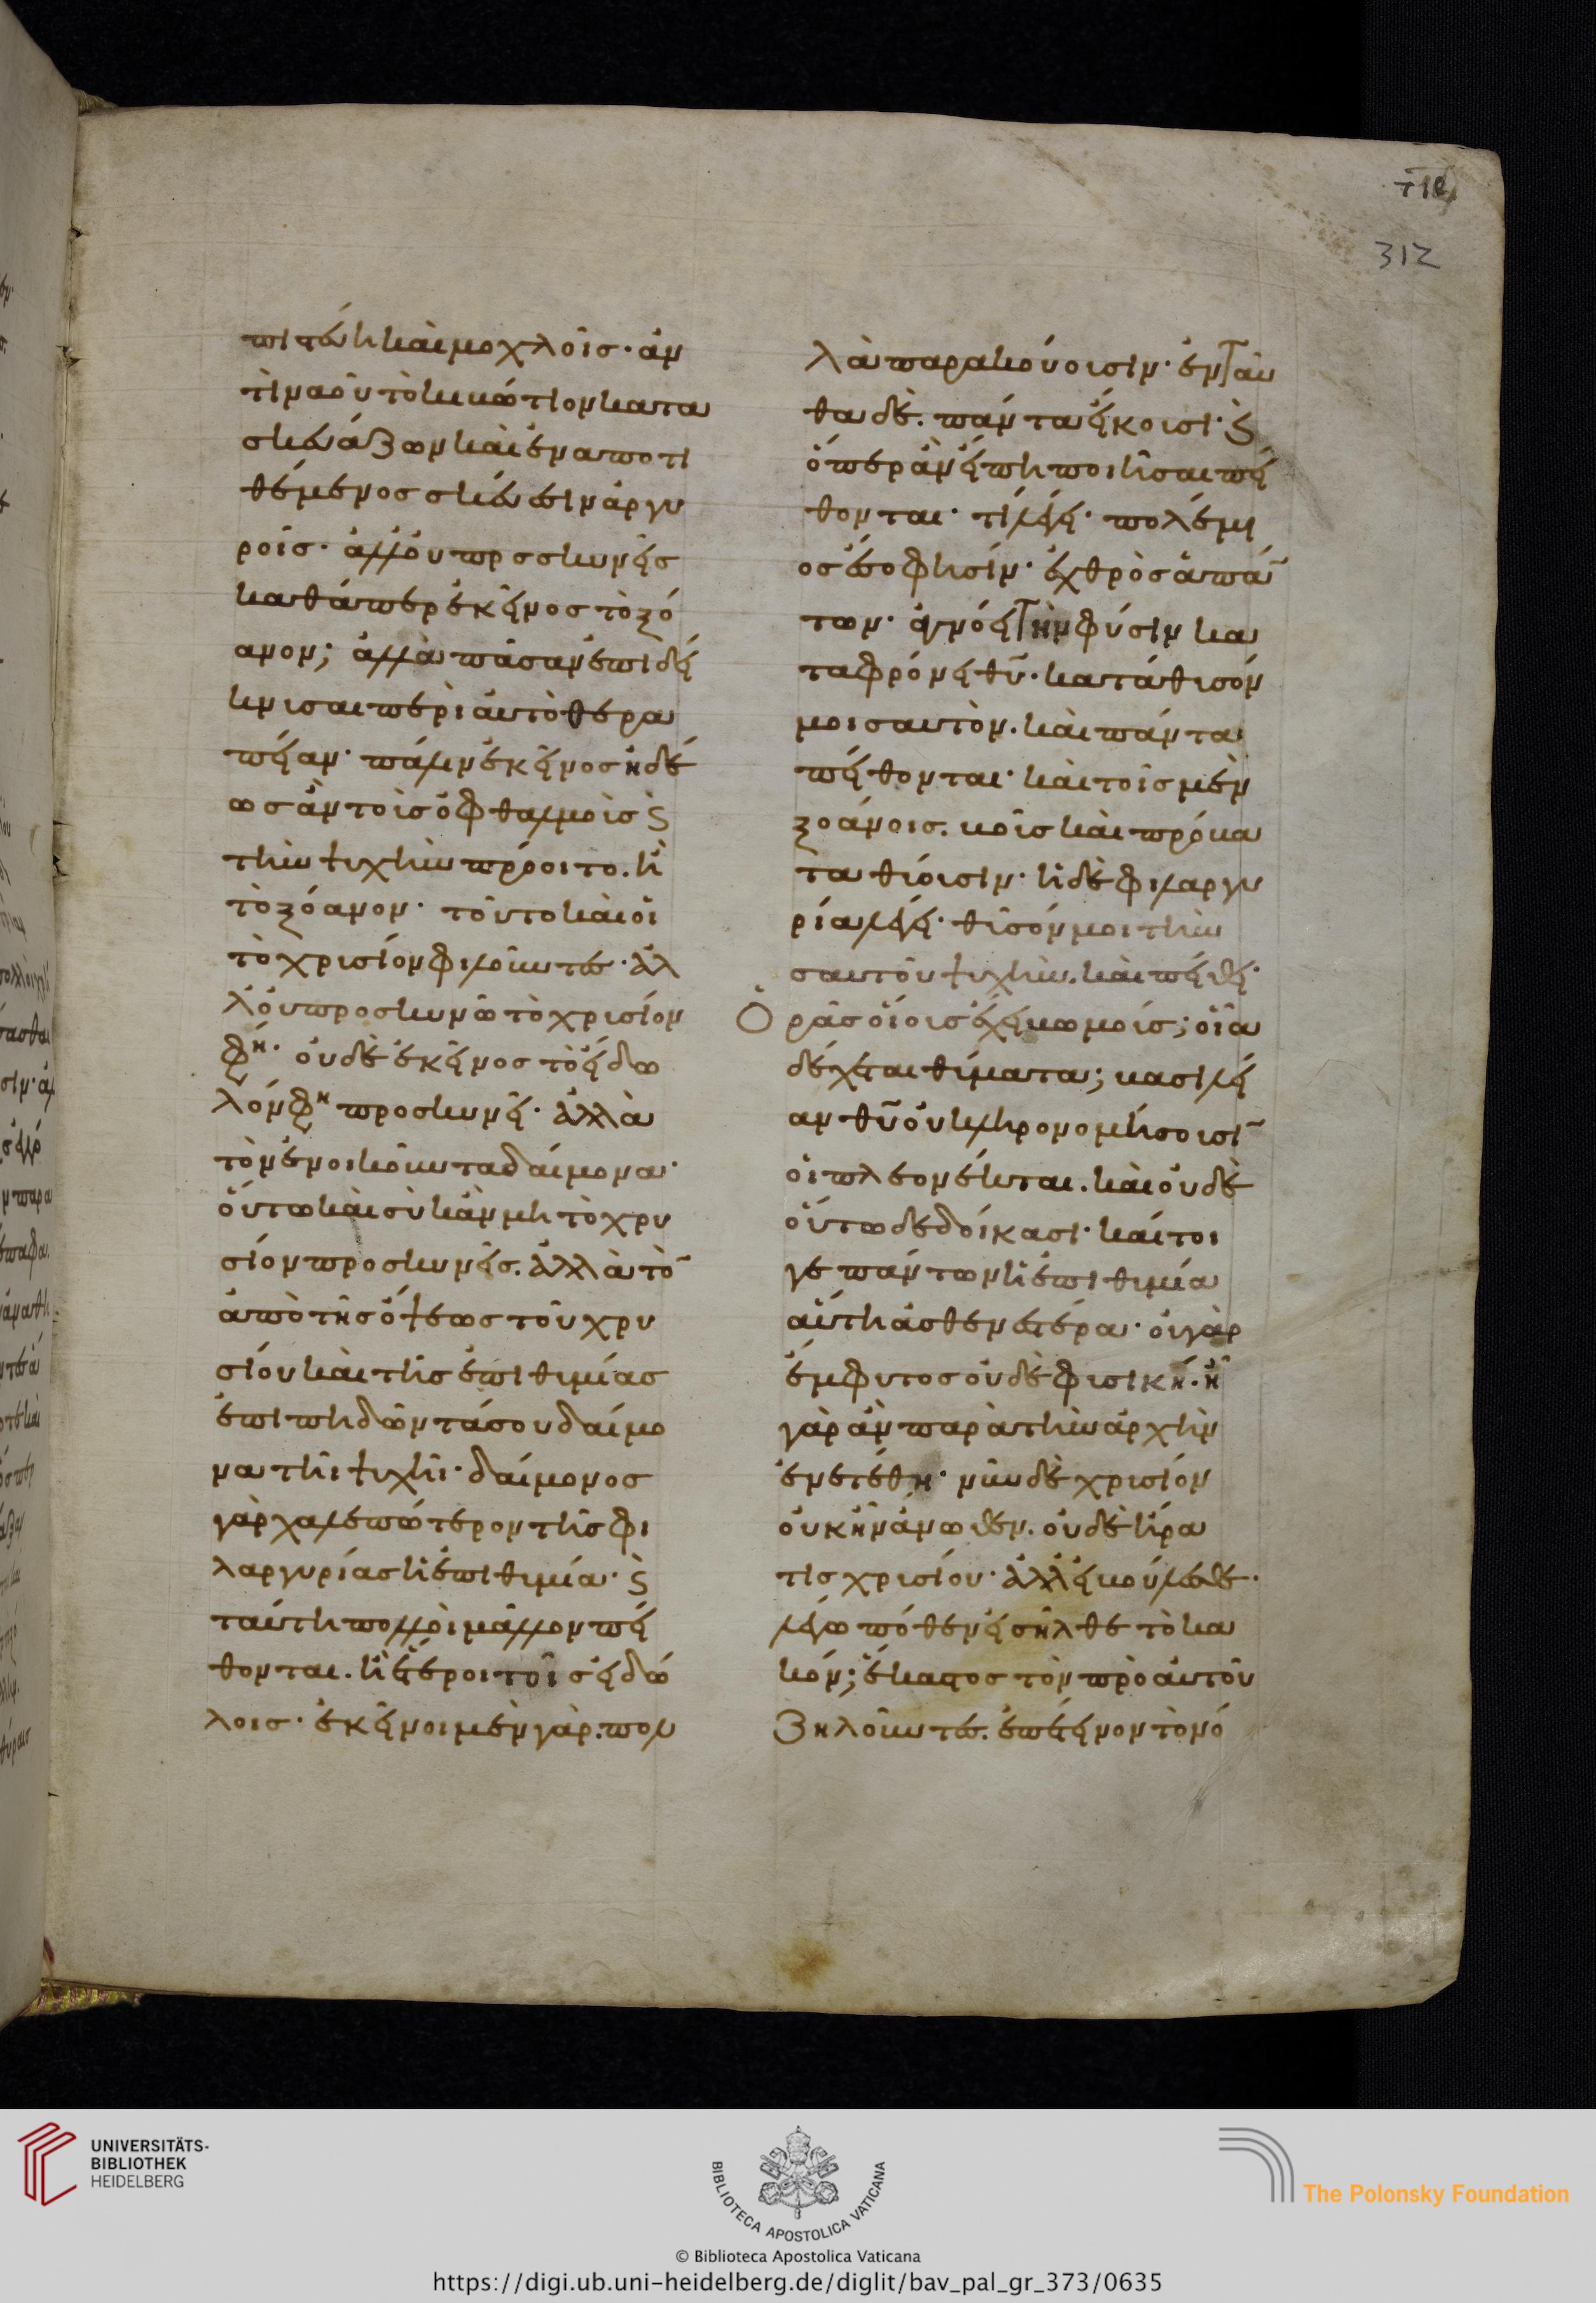 καὶ μοχλοῖς· ἀν
τὶ ναοῦ τὸ κιβώτιον κατα
σκευάζων καὶ ἐναποτι
θέμενος σκεύεσιν ἀργυ
ροῖς· ἀλλ' οὐ προσκυνεῖς
καθάπερ ἐκεῖνος τὸ ξό
ανον; ἀλλὰ πᾶσαν ἐπιδεί
κνυσαι περὶ αὐτὸ θερα
πείαν· πάλιν ἐκεῖνος ἡδέ
ως ἂν τοὺς ὀφθαλμοὺς καὶ
τὴν ψυχὴν πρόοιτο. ἢ
τὸ ξόανον· τοῦτο καὶ οἱ
τὸ χρυσίον φιλοῦντες· ἀλ
λ' οὐ προσκυνῶ τὸ χρυσίον
φη· οὐδὲ ἐκεῖνος τὸ εἴδω
λόν φη προσκυνεῖ· ἀλλὰ
τὸν ἐνοικοῦντα δαίμονα·
οὕτω καὶ σὺ κἂν μὴ τὸ χρυ
σίον προσκυνεῖς. ἀλλὰ τὸν
ἀπὸ τῆς ὄψεως τοῦ χρυ
σίου καὶ τῆς ἐπιθυμίας
ἐπιπηδῶντά σου δαίμο
να τῆι ψυχῆι· δαίμονος
γὰρ χαλεπώτερον τῆς φι
λαργυρίας ἡ ἐπιθυμία· καὶ
ταύτη πολλοὶ μᾶλλον πεί
θονται. ἢ ἕτεροι τοῖς εἰδώ
λοις· ἐκεῖνοι μὲν γὰρ. πολ
λὰ παρακούουσιν· ἐνταῦ
θα δὲ. πάντα εἴκουσι· καὶ
ὅπερ ἂν εἴπη ποιῆσαι πεί
θονται· τί λέγει· πολέμι
ος ἔσο φησὶν· ἐχθρὸς ἁπάν
των· ἀγνόει τὴν φύσιν κα
ταφρόνει θῦ· κατάθυσόν
μοι σαυτὸν. καὶ πάντα
πείθονται· καὶ τοῖς μὲν
ξοάνοις. βοῦς καὶ πρόβα
τα θύουσιν· ἡ δὲ φιλαργυ
ρία λέγει· θῦσόν μοι τὴν
σαυτοῦ ψυχὴν. καὶ πείθει·
Ὁρᾶς οἵους ἔχει βωμούς; οἷα
δέχεται θύματα; βασιλεί
αν θῦ οὐ κληρονομήσουσιν
οἱ πλεονέκται. καὶ οὐδὲ
οὕτω δεδοίκασι· καίτοι
γε πάντων ἡ ἐπιθυμία
αὕτη ἀσθενεστέρα· οὐ γὰρ
ἔμφυτος οὐδὲ φυσική. ἦ
γὰρ ἂν παρὰ τὴν ἀρχὴν
ἐνετέθη· νῦν δὲ χρυσίον
οὐκ ἦν ἄνωθεν. οὐδὲ ἤρα
τις χρυσίου· ἀλλ' εἰ βούλεσθε·
λέγω πόθεν εἰσῆλθε τὸ κα
κόν; ἕκαστος τὸν πρὸ αὐτοῦ
ζηλοῦντες. ἐπέτεινον τὸ νό
312
UNIVERSITÄTS-
BIBLIOTHEK
HEIDELBERG
BIBLIOTECA APOSTOLICA VATICANA
The Polonsky Foundation
© Biblioteca Apostolica Vaticana
https://digi.ub.uni-heidelberg.de/diglit/bav_pal_gr_373/0635